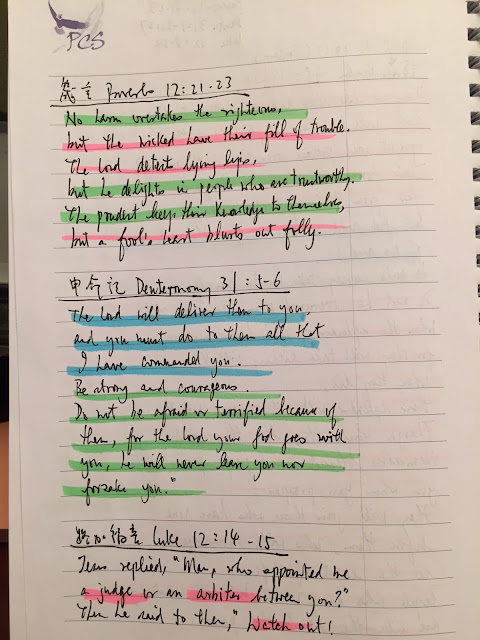 PCS
箴言 Proverbs 12:21-23
No harm overtakes the righteous,
but the wicked have their fill of trouble.
The Lord detests lying lips,
but he delights in people who are trustworthy.
The prudent keep their knowledge to themselves,
but a fool's heart blurts out folly.
申命记 Deuteronomy 31:5-6
The Lord will deliver them to you,
and you must do to them all that
I have commanded you.
Be strong and courageous.
Do not be afraid or terrified because of
them, for the Lord your God goes with
you, he will never leave you nor
forsake you."
路加福音 Luke 12:14-15
Jesus replied, "Man, who appointed me
a judge or an arbiter between you?"
Then he said to them, "Watch out!